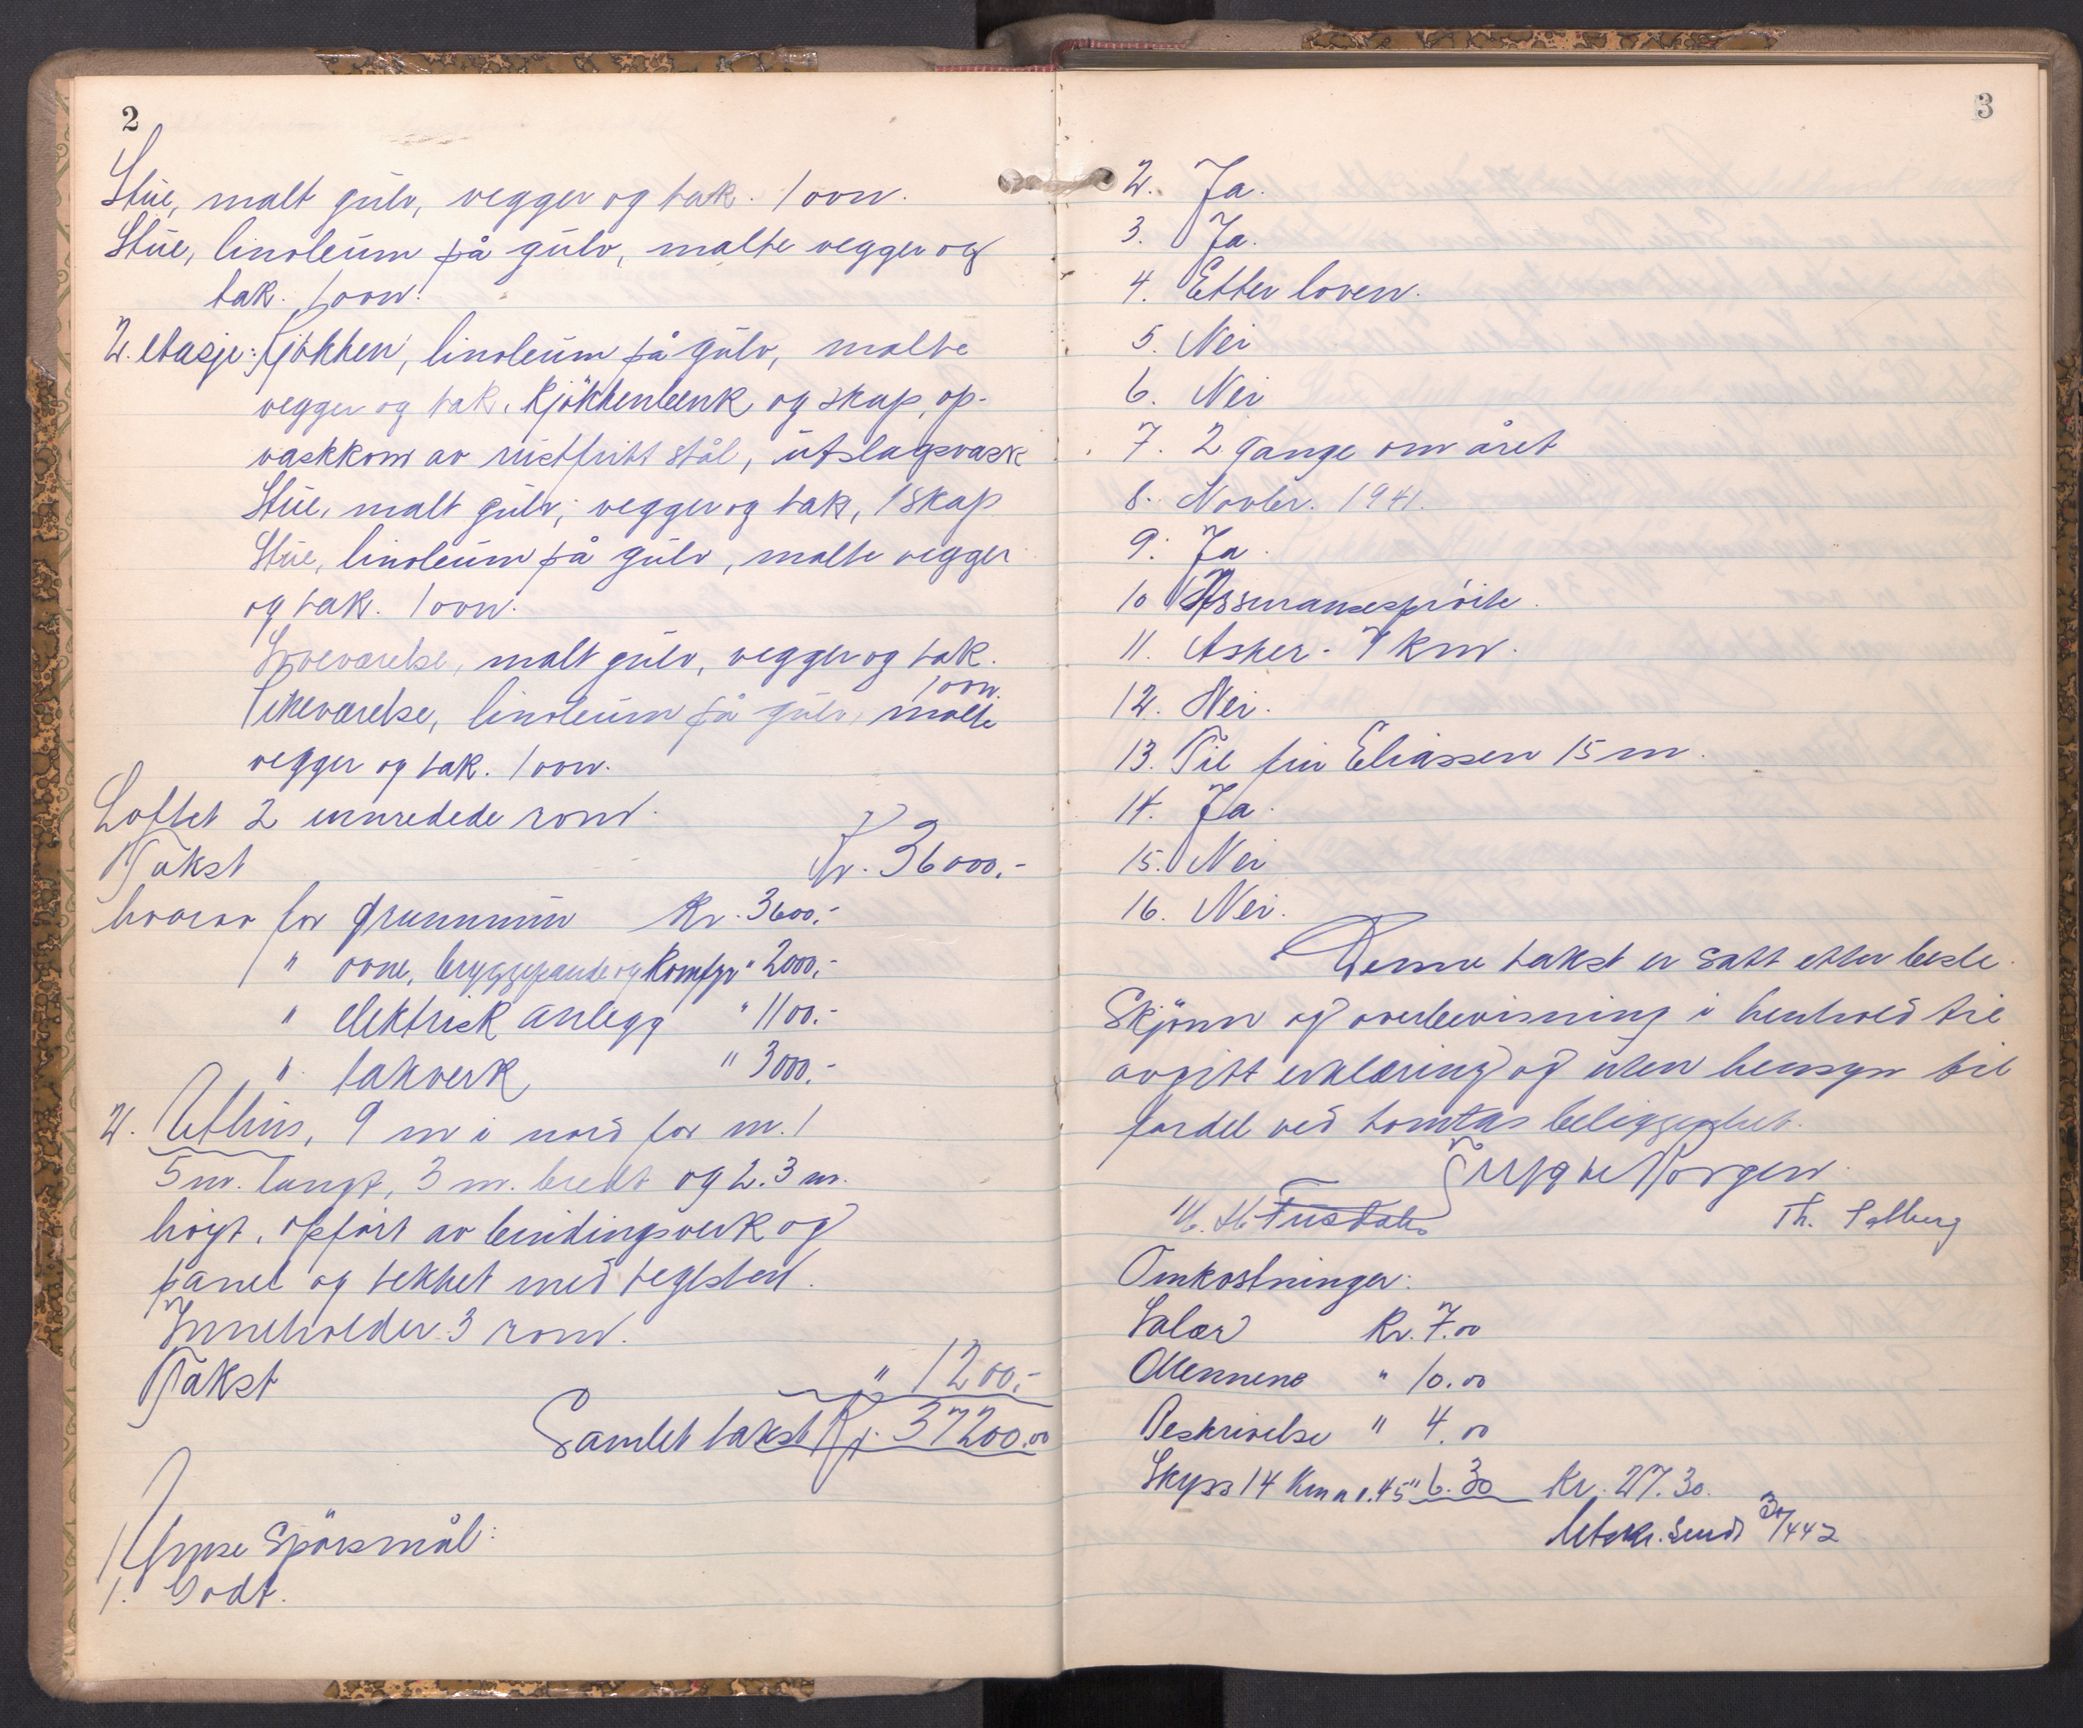 2
Stue, malt gulv, vegger og tak. 1 ovn.
Stue, linoleum på gulv, malte vegger og
tak. 1 ovn.
2. etasje: Kjökken, linoleum på gulv, malte
vegger og tak. Kjökkenbenk og skap, op-
vaskkom av rustfritt stål, utslagsvask
Stue, malt gulv, vegger og tak, 1 skap
Stue, linoleum på gulv, malte vegger
og tak. 1 ovn.
Soveværelse, malt gulv, vegger og tak.
1 ovn.
Pikeværelse, linoleum på gulv, malte
vegger og tak. 1 ovn.
Loftet 2 innredede rom.
Takst Kr. 36000.-
hvorav for grunnmur Kr. 3600.-
" ovne, bryggepande og Komfyr " 2000.-
" elektrisk anlegg " 1100.-
" takverk " 3000.-
2. Uthus, 9 m i nord for nr. 1
5 m. langt, 3 m. bredt og 2.3 m.
höyt, opfört av bindingsverk og
panel og tekket med teglsten.
Inneholder 3 rom.
Takst " 1200.-
Samlet takst Kr. 37200.00
Trykte Spörsmål:
1. Godt.
3
2. Ja.
3. Ja.
4. Etter loven.
5. Nei
6. Nei
7. 2 gange om året
8. Novbr. 1941.
9. Ja.
10 Assuransespröite.
11. Asker - 7 km.
12. Nei.
13. Til fru Eliassen 15 m.
14. Ja.
15. Nei
16. Nei.
Denne takst er satt efter beste
Skjönn og overbevisning i henhold til
avgitt erklæring og uten hensyn til
fordel ved tomtas beliggenhet.
Trygve Borgen
Th. Solberg
Omkostninger:
Salær Kr. 7.00
Mennene " 10.00
Beskrivelse " 4.00
Skyss 14 Km a 0.45 " 6.30 Kr. 27.30.
Utskr. sendt 30/4 42